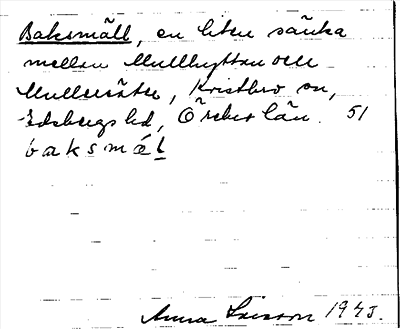 Baksmäll, en liten sänka
mellan Mullhyttan och
Mullersäter, Kristbro sn,
Edsbergs hd, Örebro län. 51
baksmä̀l
Anna Larsson 1943.